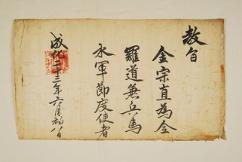 教旨
金宗直為全
羅道兼兵馬
水軍節度使者
成化二十三年六月初八日